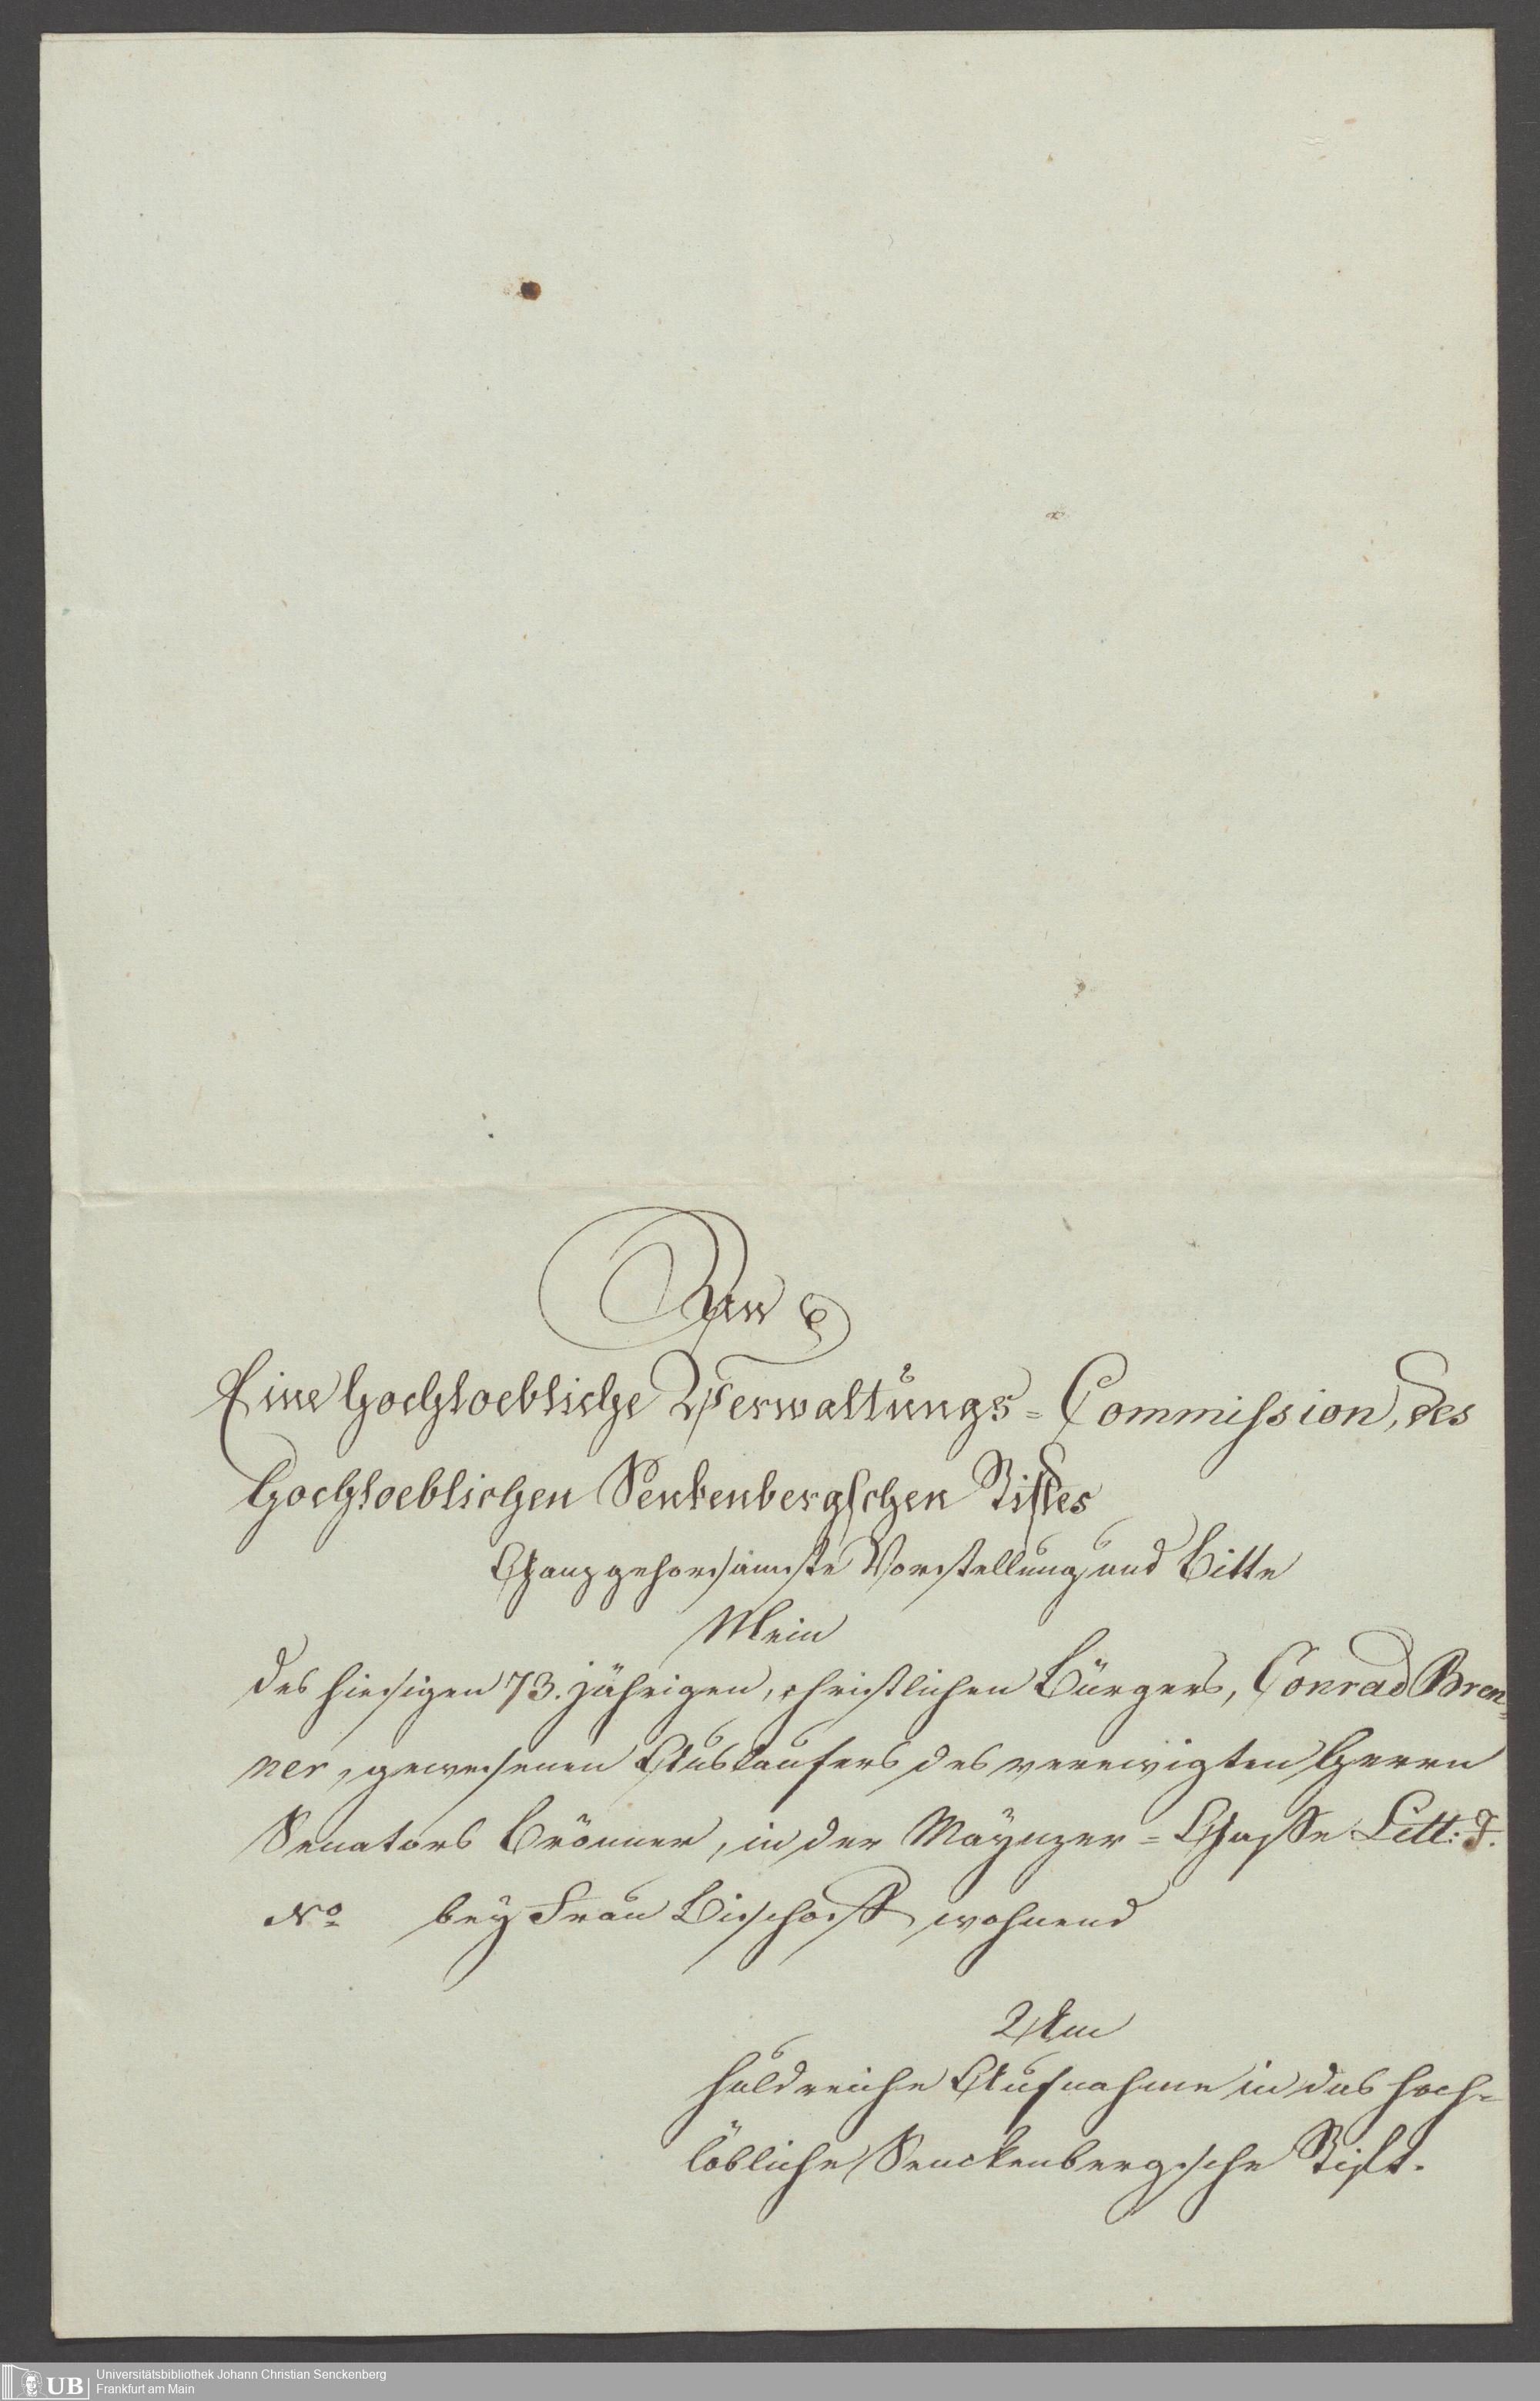 An
Eine Hochloebliche Verwaltungs=Commission, des
Hochloeblichen Senkenbergschen Stiftes
Ganz gehorsamste Vorstellung und Bitte
Mein
des hiesigen 73.jährigen, christlichen Bürgers, Conrad Bren=
ner, gewesenen Auslaufers des verewigten Herrn
Senators Brönner, in der Maynzer=Gasse Litt: J.
No bey Frau Bischoff wohnend
Um
huldreiche Aufnahme in das hoch=
löbliche Senckenbergsche Stift.
UB
Universitätsbibliothek Johann Christian Senckenberg
Frankfurt am Main